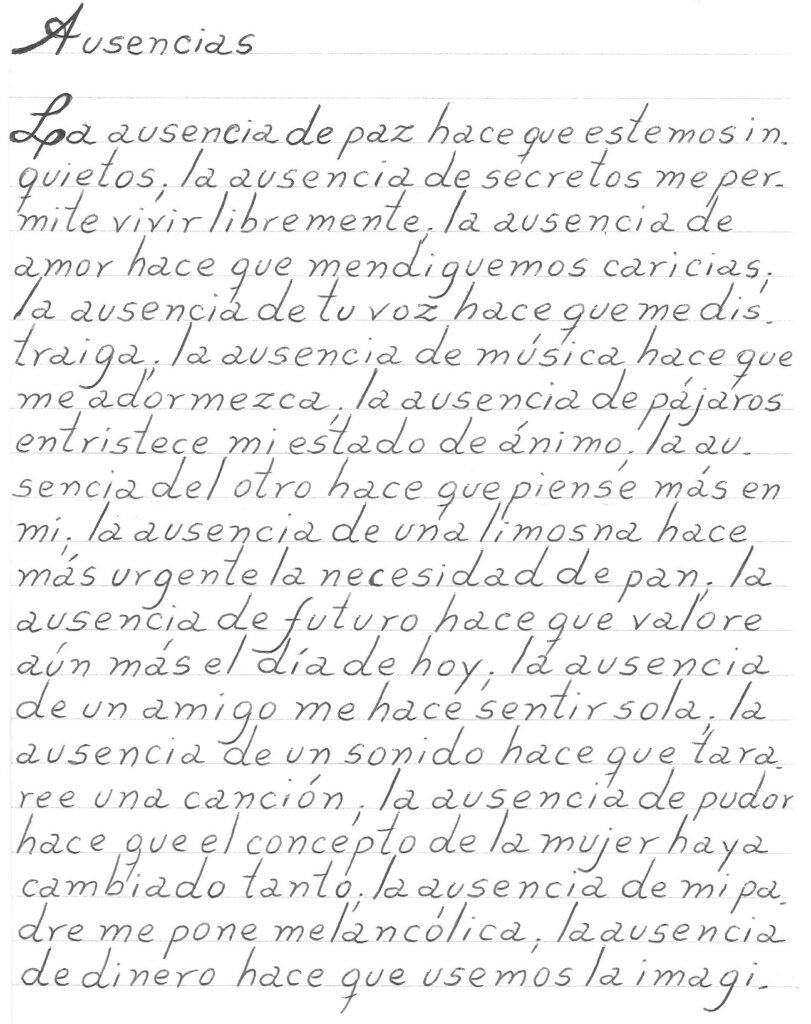 Ausencias
La ausencia de paz hace que estemos in-
quietos; la ausencia de secretos me per-
mite vivir libremente; la ausencia de
amor hace que mendiguemos caricias;
la ausencia de tu voz hace que me dis-
traiga; la ausencia de música hace que
me adormezca; la ausencia de pájaros
entristece mi estado de ánimo; la au-
sencia del otro hace que piense más en
mí; la ausencia de una limosna hace
más urgente la necesidad de pan; la
ausencia de futuro hace que valore
aún más el día de hoy; la ausencia
de un amigo me hace sentir sola; la
ausencia de un sonido hace que tara-
ree una canción; la ausencia de pudor
hace que el concepto de la mujer haya
cambiado tanto; la ausencia de mi pa-
dre me pone melancólica; la ausencia
de dinero hace que usemos la imagi-